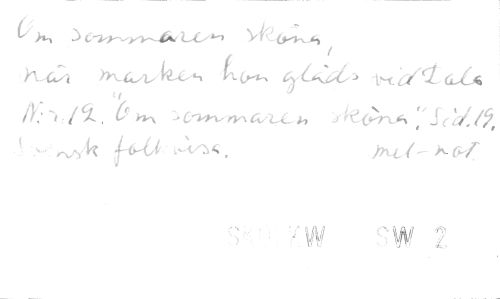 Om sommaren sköna,
när marken hon gläds vid Dala
N:r.12. "Om sommaren sköna", Sid.19.
Svensk folkvisa. mel-not.
SW 2